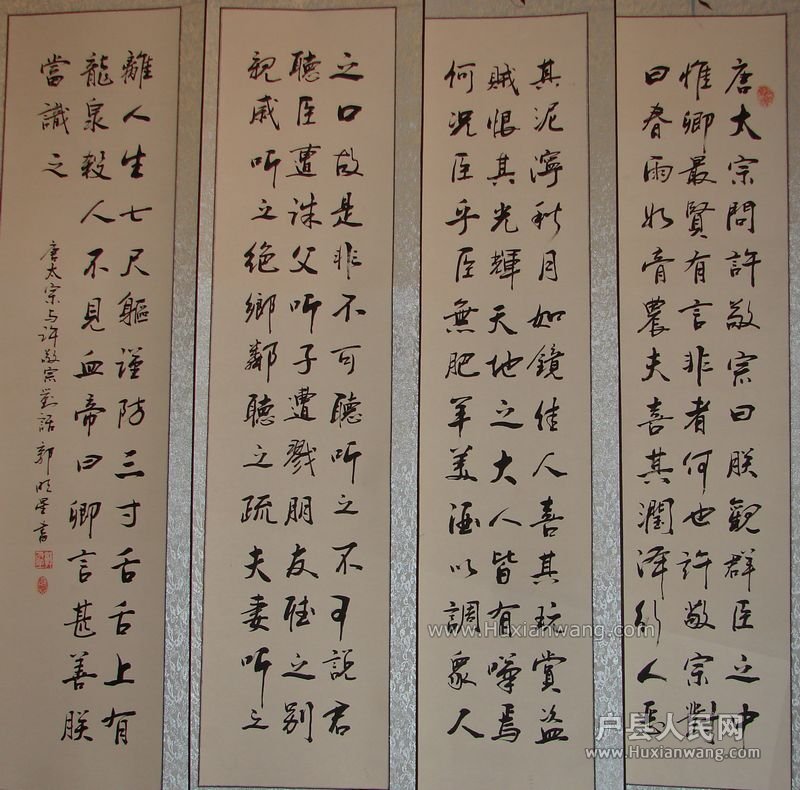 唐太宗問許敬宗曰朕觀群臣之中
惟卿最賢有言非者何也許敬宗對
曰春雨如膏農夫喜其潤澤行人惡
其泥濘秋月如鏡佳人喜其玩賞盜
賊恨其光輝天地之大人皆有嘆焉
何況臣乎臣無肥羊美酒以調衆人
之口故是非不可聽听之不可説君
聽臣遭誅父听子遭戮朋友聽之别
親戚听之絶鄉鄰聽之疏夫妻听之
離人生七尺軀謹防三寸舌舌上有
龍泉殺人不見血帝曰卿言甚善朕
當識之
唐太宗与许敬宗對話 郭明星書
www.Huxianwang.com
户县人民网
www.Huxianwang.com